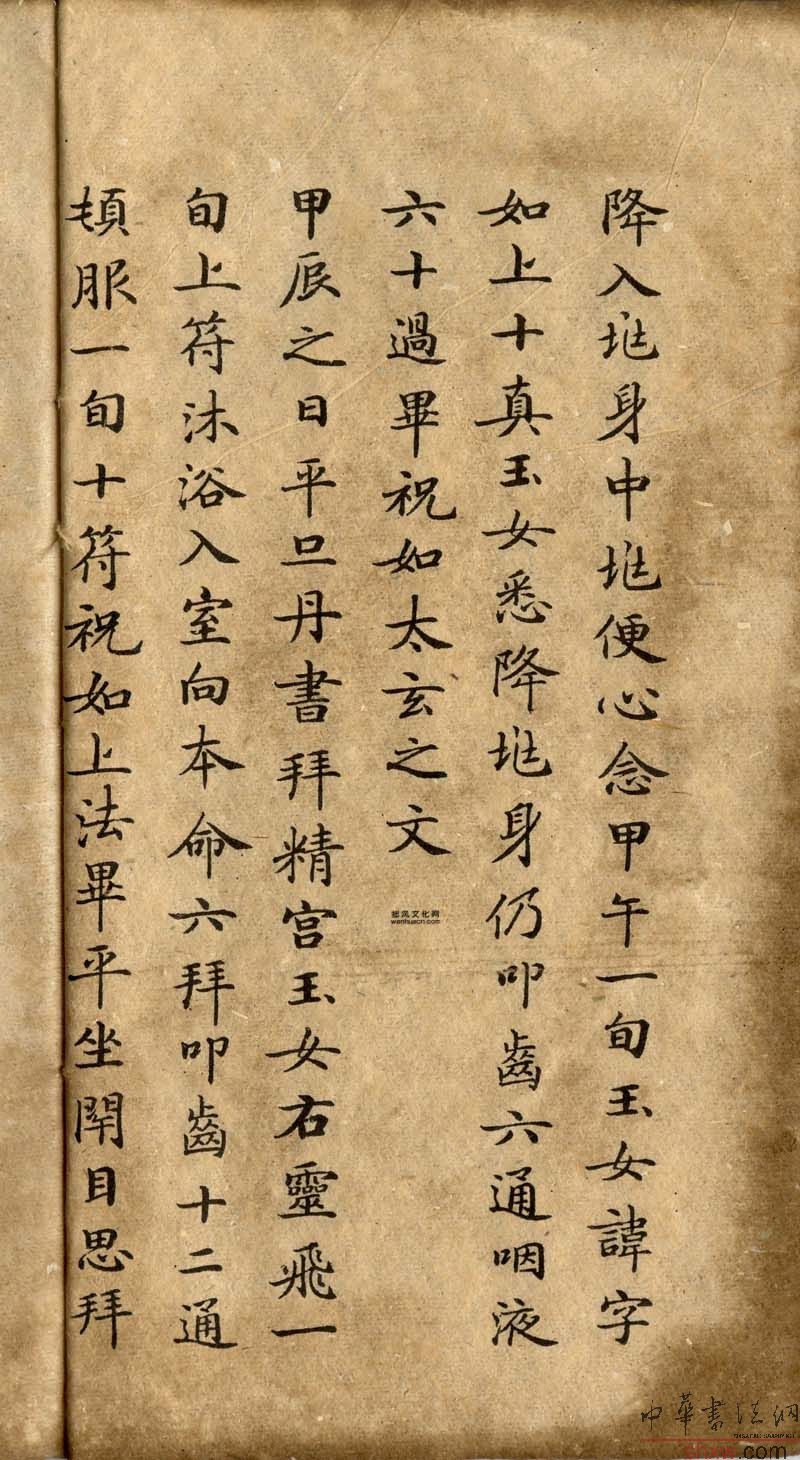 降入垗身中垗便心念甲午一旬玉女諱字
如上十真玉女悉降垗身仍叩齒六通咽液
六十過畢祝如太玄之文
甲辰之日平旦丹書拜精宮玉女右靈飛一
旬上符沐浴入室向本命六拜叩齒十二通
頓服一旬十符祝如上法畢平坐閉目思拜
文化网
wenhuacn.com
中華書法網
.com